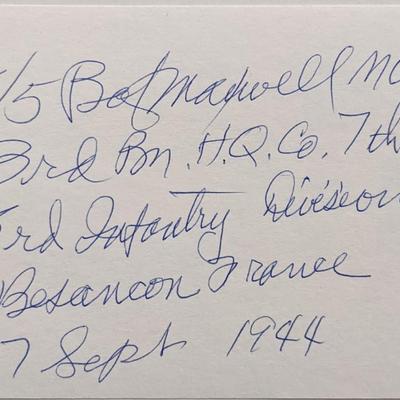 /5 Bob Maxwell MO
3rd Bn. H.Q. Co. 7th
3rd Infantry Division
Besancon France
7 Sept 1944